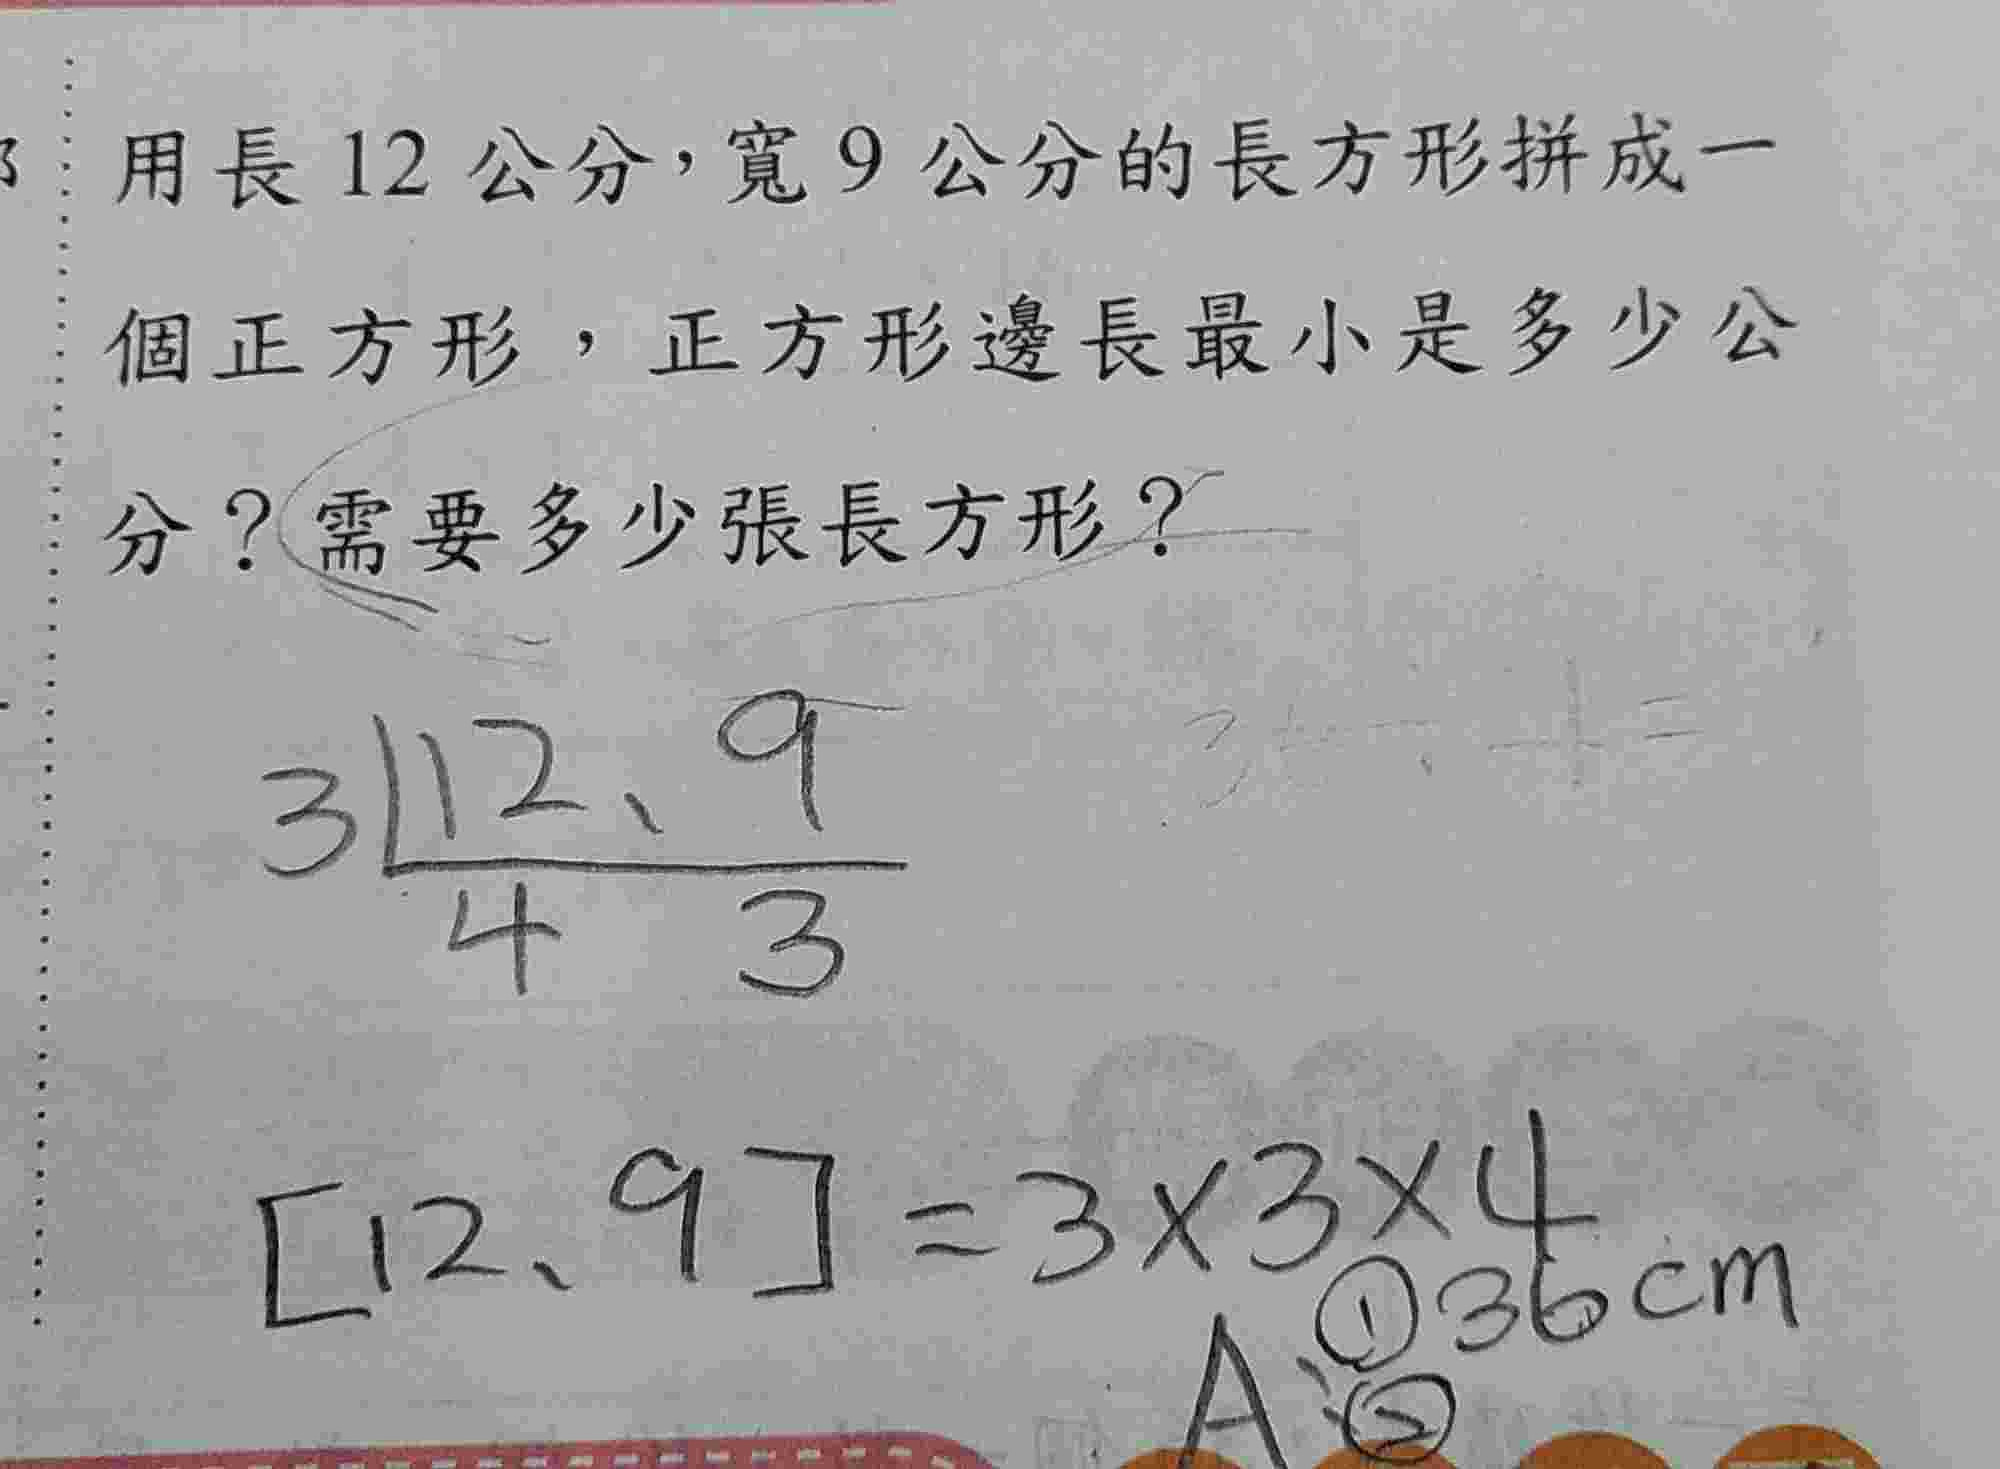 用長 12 公分，寬 9 公分的長方形拼成一
個正方形，正方形邊長最小是多少公
分？需要多少張長方形？
3 12、9
4 3
[12、9] = 3×3×4
A：① 36 cm
②